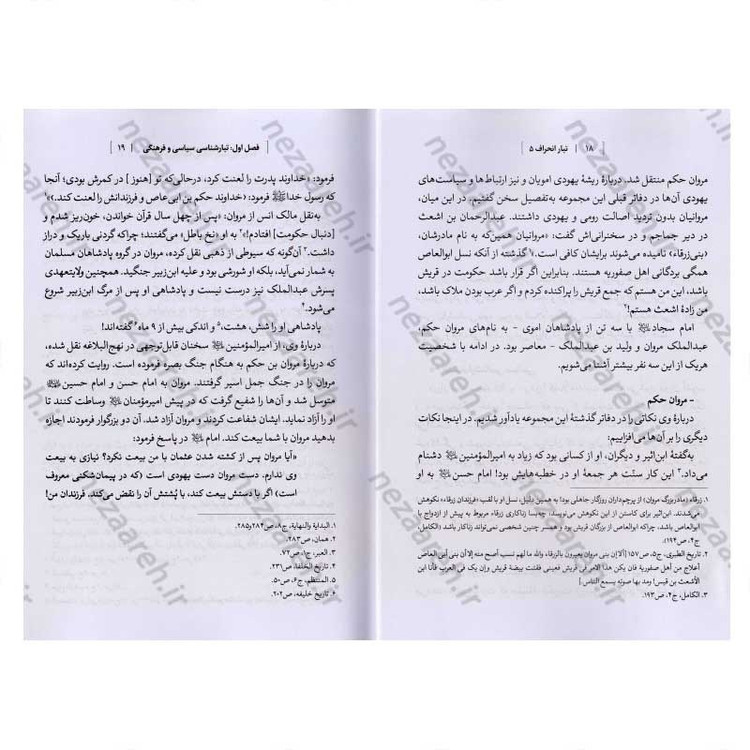 ۱۸ | تبار انحراف ۵
مروان حکم منتقل شد. دربارهٔ ریشهٔ یهودی امویان و نیز ارتباط‌ها و سیاست‌های
یهودی آن‌ها در دفاتر قبلی این مجموعه به‌تفصیل سخن گفتیم. در این میان،
مروانیان بدون تردید اصالت رومی و یهودی داشتند. عبدالرحمان بن اشعث
در دیر جماجم و در سخنرانی‌اش گفت: «مروانیان همین‌که به نام مادرشان،
«بنی‌زرقاء» نامیده می‌شوند برایشان کافی است.۱ گذشته از آنکه نسل ابوالعاص
همگی بردگانی اهل صفوریه هستند. بنابراین اگر قرار باشد حکومت در قریش
باشد، این من هستم که جمع قریش را پراکنده کردم و اگر عرب بودن ملاک باشد،
من زادهٔ اشعث هستم!۲
امام سجاد با سه تن از پادشاهان اموی - به نام‌های مروان حکم،
عبدالملک مروان و ولید بن عبدالملک - معاصر بود. در ادامه با شخصیت
هریک از این سه نفر بیشتر آشنا می‌شویم.
- مروان حکم
دربارهٔ وی نکاتی را در دفاتر گذشتهٔ این مجموعه یادآور شدیم. در اینجا نکات
دیگری را بر آن‌ها می‌افزاییم:
به‌گفتهٔ ابن‌اثیر و دیگران، او از کسانی بود که زیاد به امیرالمؤمنین دشنام
می‌داد.۳ این کار سنّت هر جمعهٔ او در خطبه‌هایش بود! امام حسن به او
۱. زرقاء (مادربزرگ مروان) از پرچم‌داران روزگار جاهلی بود! به همین دلیل، نسل او با لقب «فرزندان زرقاء» نکوهش
می‌شدند. ابن‌اثیر برای کاستن از این نکوهش می‌نویسد، چه‌بسا زناکاری زرقاء مربوط به پیش از ازدواج با
ابوالعاص باشد، چراکه ابوالعاص از بزرگان قریش بود و همسر چنین شخصی نمی‌تواند زناکار باشد (الکامل،
ج۴، ص۱۹۴).
۲. تاریخ الطبری، ج۵، ص۱۵۷ [ألا إن بنی مروان یعیرون بالزرقاء والله ما لهم نسب أصح منه إلا أن بنی أبی العاص
أعلاج من أهل صفوریة فان یکن هذا الامر فی قریش فعنی فقئت بیضة قریش وإن یک فی العرب فأنا ابن
الأشعث بن قیس! ومد بها صوته یسمع الناس.]
۳. الکامل، ج۴، ص۱۹۳.
فصل اول: تبارشناسی سیاسی و فرهنگی | ۱۹
فرمود: «خداوند پدرت را لعنت کرد، درحالی‌که تو [هنوز] در کمرش بودی؛ آنجا
که رسول خدا فرمود: «خداوند حکم بن ابی‌عاص و فرزندانش را لعنت کند.»۱
به‌نقل مالک انس از مروان: «پس از چهل سال قرآن خواندن، خون‌ریز شدم و
[دنبال حکومت] افتادم!»۲ به او «نخ باطل» می‌گفتند؛ چراکه گردنی باریک و دراز
داشت.۳ آن‌گونه که سیوطی از ذهبی نقل کرده، مروان در گروه پادشاهان مسلمان
به شمار نمی‌آید، بلکه او شورشی بود و علیه ابن‌زبیر جنگید. همچنین ولایتعهدی
پسرش عبدالملک نیز درست نیست و پادشاهی او پس از مرگ ابن‌زبیر شروع
می‌شود.۴
پادشاهی او را شش، هشت،۵ و اندکی بیش از ۹ ماه۶ گفته‌اند!
دربارهٔ وی، از امیرالمؤمنین سخنان قابل‌توجهی در نهج‌البلاغه نقل شده،
که دربارهٔ مروان بن حکم به هنگام جنگ بصره فرموده است. روایت کرده‌اند که
مروان را در جنگ جمل اسیر گرفتند. مروان به امام حسن و امام حسین
متوسل شد و آن‌ها را شفیع گرفت که در پیش امیرمؤمنان وساطت کنند تا
او را آزاد نماید. ایشان شفاعت کردند و مروان آزاد شد. آن دو بزرگوار فرمودند اجازه
بدهید مروان با شما بیعت کند. امام در پاسخ فرمود:
«آیا مروان پس از کشته شدن عثمان با من بیعت نکرد؟ نیازی به بیعت
وی ندارم. دست مروان دست یهودی است (که در پیمان‌شکنی معروف
است) اگر با دستش بیعت کند، با پُشتش آن را نقض می‌کند. فرزندان من!
۱. البدایة والنهایة، ج۸، ص۲۸۴و۲۸۵.
۲. همان، ص۲۸۳.
۳. العبر، ج۱، ص۷۲.
۴. تاریخ الخلفا، ص۲۳۱.
۵. المنتظم، ج۶، ص۵۰.
۶. تاریخ خلیفه، ص۲۰۲.
nezaareh.ir